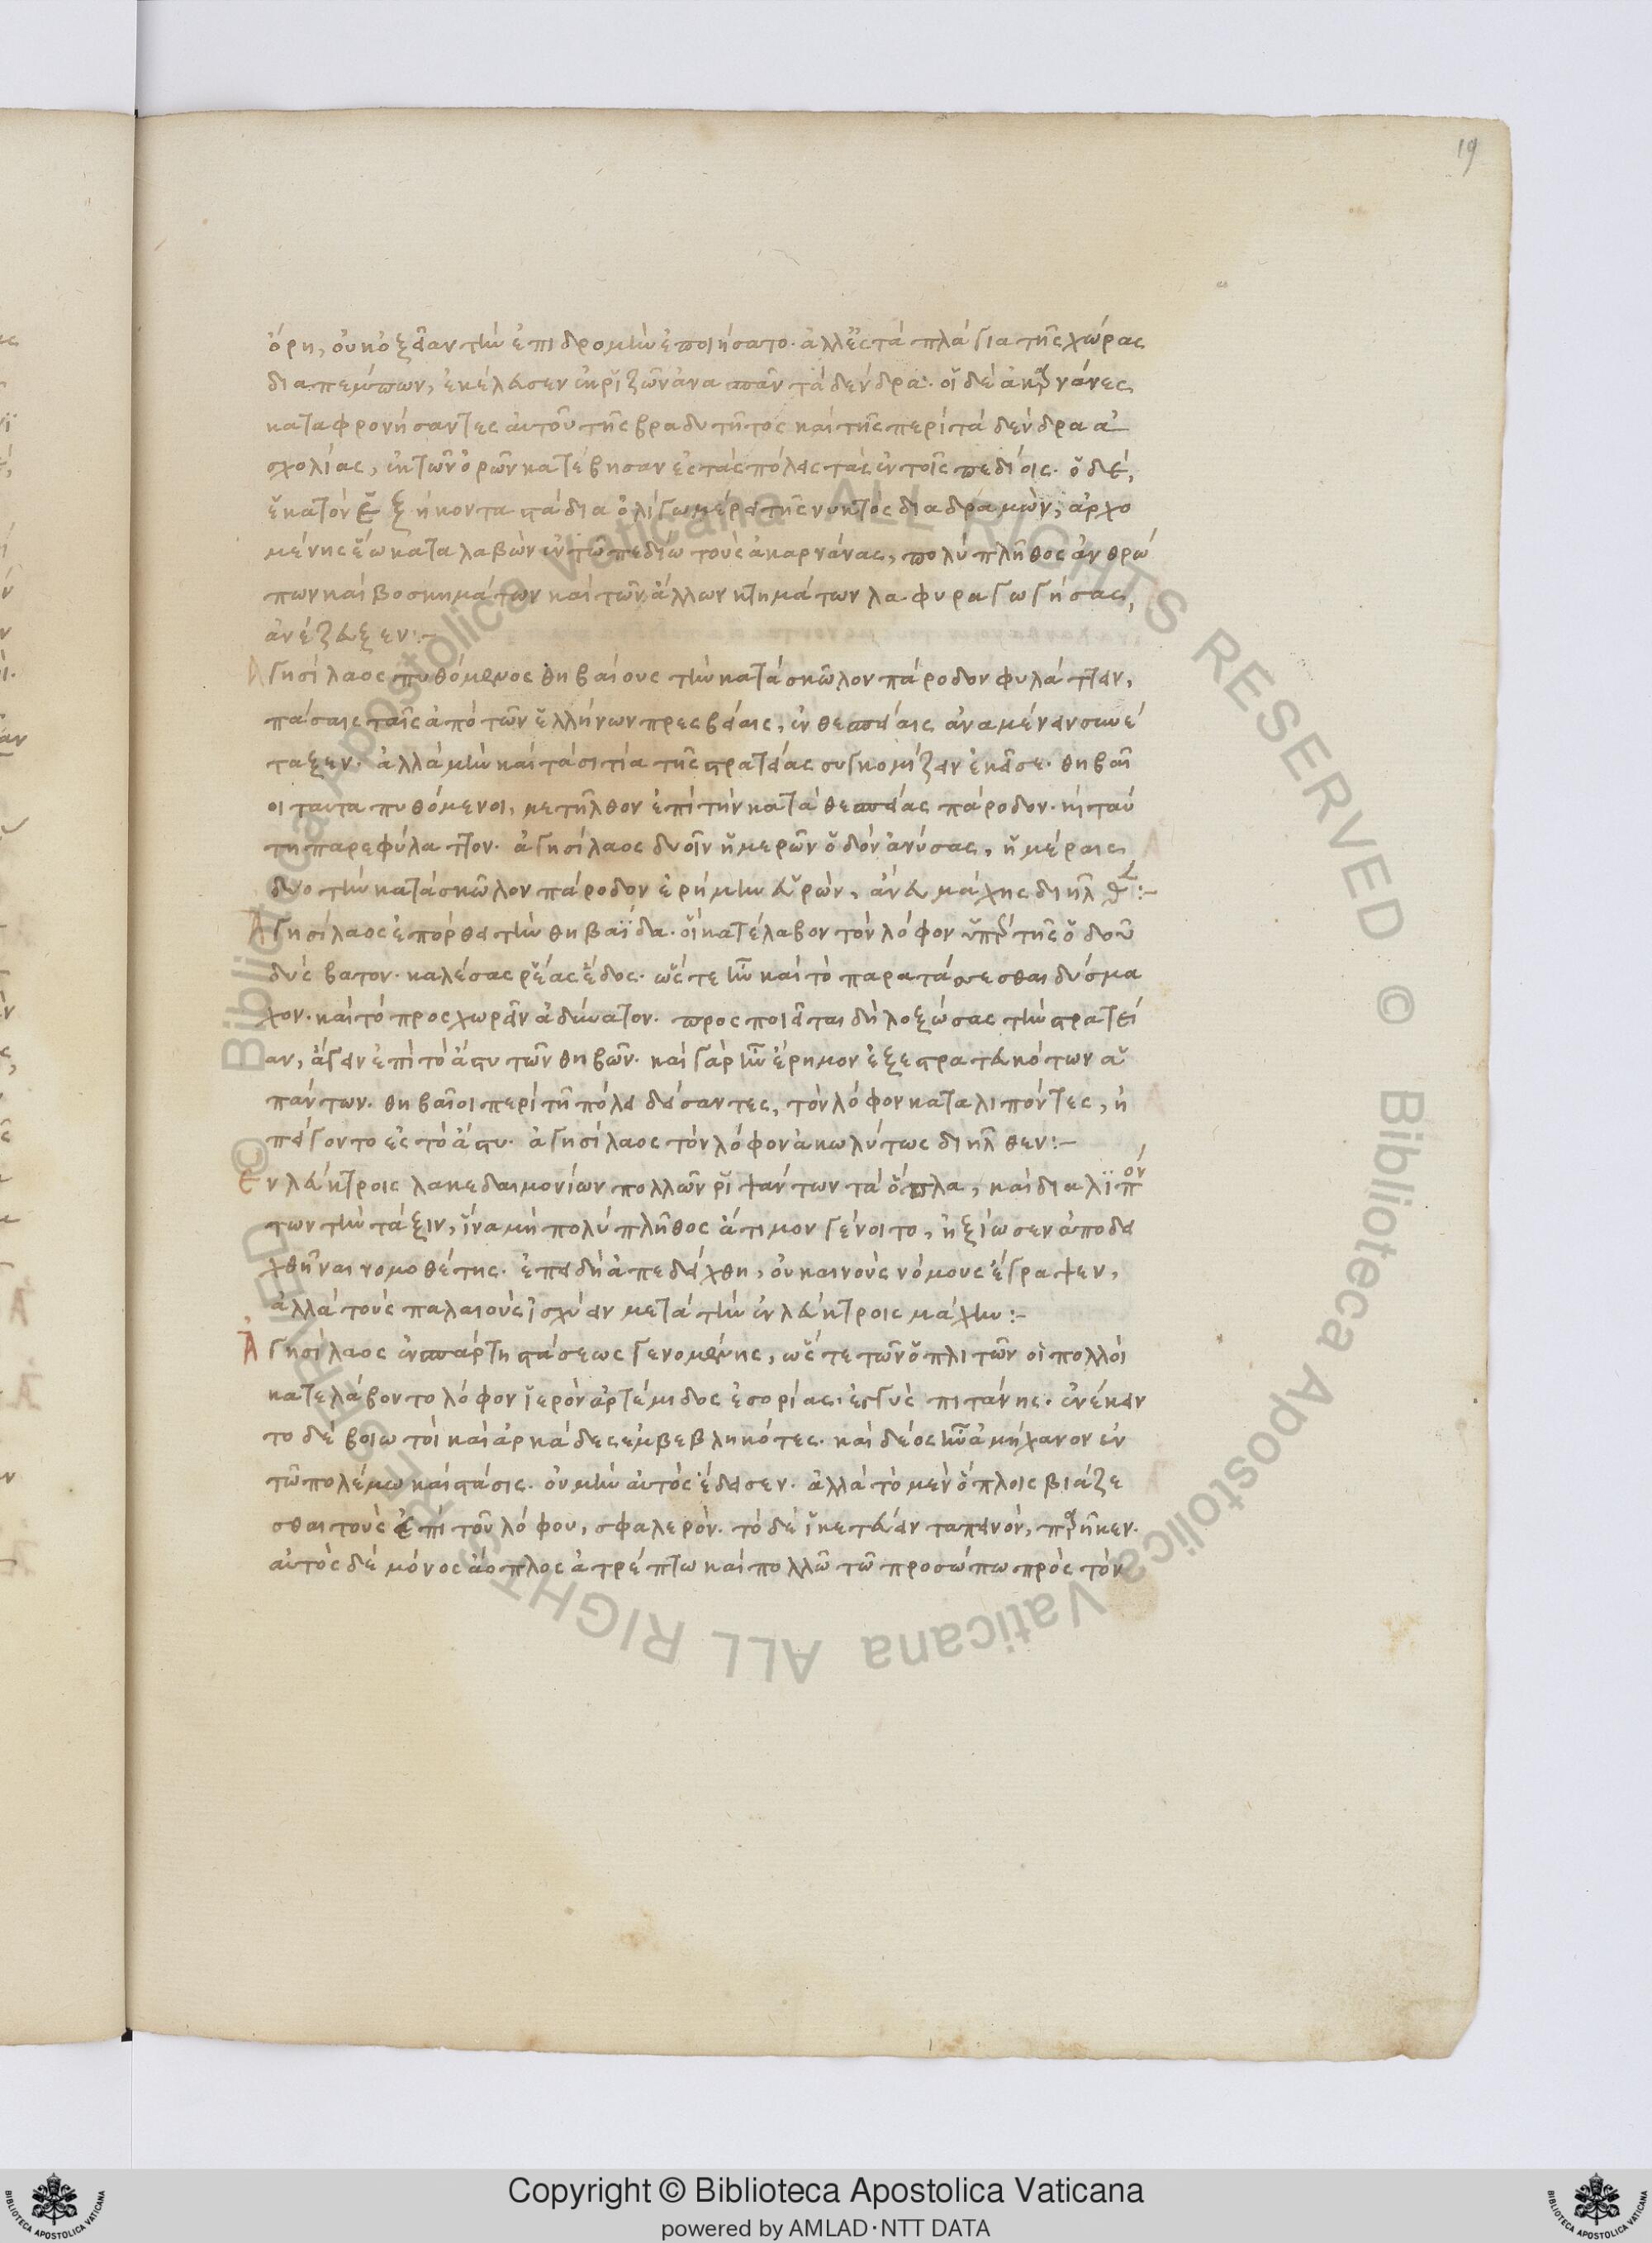 19
ὄρη, οὐκ ὀξεῖαν τὴν ἐπιδρομὴν ἐποιήσατο· ἀλλ' ἐς τὰ πλάγια τῆς χώρας
διαπέμπων, ἐκέλευσεν ἐκριζῶν ἀνασπᾶν τὰ δένδρα· οἱ δὲ ἀκαρνάνες
καταφρονήσαντες αὐτοῦ τῆς βραδυτῆτος καὶ τῆς περὶ τὰ δένδρα ἀ
σχολίας, ἐκ τῶν ὀρῶν κατέβησαν ἐς τὰς πόλεις τὰς ἐν τοῖς πεδίοις· ὁ δὲ,
ἑκατὸν ἑξήκοντα στάδια ὀλίγω μέρει τῆς νυκτὸς διαδραμὼν, ἀρχο
μένης ἕω καταλαβὼν ἐν τῶ πεδίω τοὺς ἀκαρνάνας, πολὺ πλῆθος ἀνθρώ
πων καὶ βοσκημάτων καὶ τῶν ἄλλων κτημάτων λαφυραγωγήσας,
ἀνέζευξεν:–
Ἀγησίλαος πυθόμενος θηβαίους τὴν κατὰ σκῶλον πάροδον φυλάττειν,
πάσαις ταῖς ἀπὸ τῶν ἑλλήνων πρεσβείαις, ἐν θεσπείαις ἀναμένειν συνέ
ταξεν· ἀλλὰ μὴν καὶ τὰ σιτία τῆς στρατείας συγκομίζειν ἐκεῖσε· θηβαῖ
οι ταυτα πυθόμενοι, μετῆλθον ἐπὶ τὴν κατὰ θεσπείας πάροδον· κἠ ταύ
τη παρεφύλαττον· ἀγησίλαος δυοῖν ἡμερῶν ὁδὸν ἀνύσας, ἡμέραις
δυο τὴν κατὰ σκῶλον πάροδον ἐρήμην εὑρὼν, ἄνευ μάχης διῆλθε:–
Ἀγησίλαος ἐπόρθει τὴν θηβαΐδα· οἱ κατέλαβον τὸν λόφον ὑπὲρ τῆς ὁδοῦ
δύσβατον· καλέσας ῥέας ἕδος· ὥστε ἦν καὶ τὸ παρατάσσεσθαι δύσμα
χον· καὶ τὸ προσχωρεῖν ἀδύνατον· προσποιεῖται δὴ λοξώσας τὴν στρατεί
αν, ἄγειν ἐπὶ τὸ ἄστυ τῶν θηβῶν· καὶ γὰρ ἦν ἔρημον ἐξεστρατευκότων ἁ
πάντων· θηβαῖοι περὶ τῆ πόλει δείσαντες, τὸν λόφον καταλιπόντες, ἠ
πείγοντο ἐς τὸ ἄστυ· ἀγησίλαος τὸν λόφον ἀκωλύτως διῆλθεν:–
Ἐν λεύκτροις λακεδαιμονίων πολλῶν ῥιψάντων τὰ ὅπλα, καὶ διαλϊπόν
των τὴν τάξιν, ἵνα μὴ πολὺ πλῆθος ἄτιμον γένοιτο, ἠξίωσεν ἀποδει
χθῆναι νομοθέτης· ἐπειδὴ ἀπεδείχθη, οὐ καινοὺς νόμους ἔγραψεν,
ἀλλὰ τοὺς παλαιοὺς ἰσχύειν μετὰ τὴν ἐν λεύκτροις μάχην:–
Ἀγησίλαος ἐν σπάρτη στάσεως γενομένης, ὥστε τῶν ὁπλιτῶν οἱ πολλοὶ
κατελάβοντο λόφον ἱερὸν ἀρτέμιδος ἐσορίας ἐγγὺς πιτάνης· ἐνέκειν
το δὲ βοιωτοὶ καὶ ἀρκάδες ἐμβεβληκότες· καὶ δέος ἦν ἀμήχανον ἐν
τῶ πολέμω καὶ στάσις· οὐ μὴν αὐτὸς ἔδεισεν· ἀλλὰ τὸ μὲν ὅπλοις βιάζε
σθαι τοὺς ἐπὶ τοῦ λόφου, σφαλερόν· τὸ δὲ ἱκετεύειν ταπεινὸν, παρῆκεν·
αὐτὸς δὲ μόνος ἄοπλος ἀτρέπτω καὶ πολλῶ τῶ προσώπω πρὸς τὸν
© Biblioteca Apostolica Vaticana ALL RIGHTS RESERVED © Biblioteca Apostolica Vaticana ALL RIGHTS RESERVED
Copyright © Biblioteca Apostolica Vaticana
powered by AMLAD·NTT DATA
BIBLIOTECA APOSTOLICA VATICANA
BIBLIOTECA APOSTOLICA VATICANA